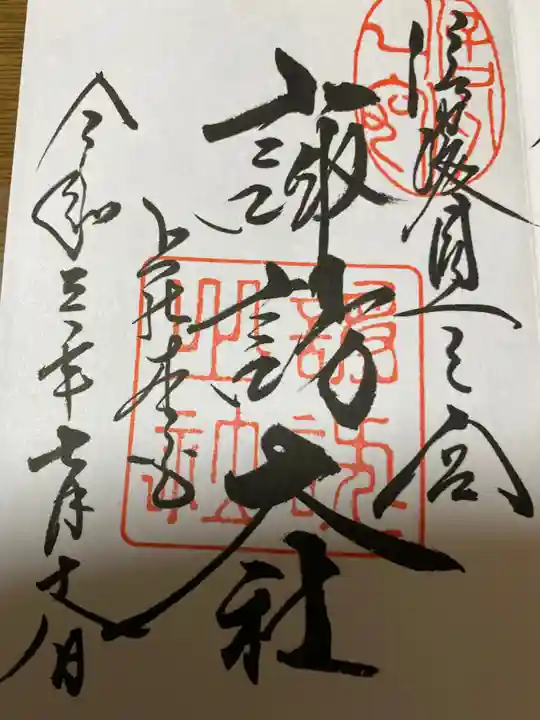 信濃國一之宮
諏訪大社
上社本宮
令和三年七月十八日